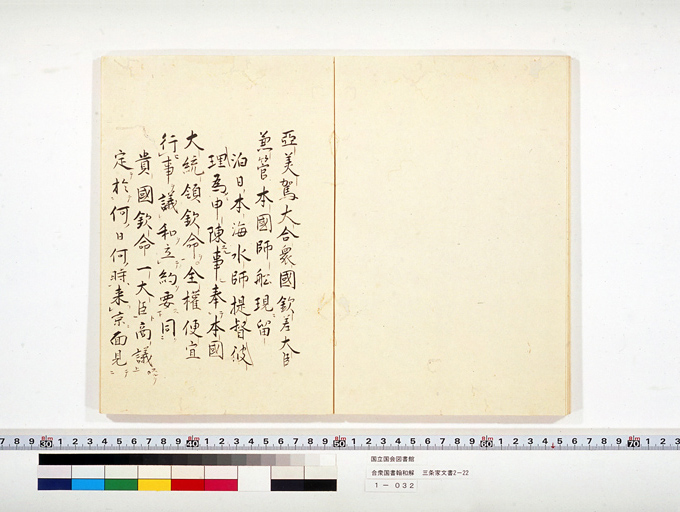 亞美駕大合衆國欽差大臣
兼管本國師舩現留
泊日本海水師提督彼
理爲申陳事奉本國
大統領欽命全權便宜
行事議和立約要同
貴國欽命一大臣商議
定於何日何時来京面見
国立国会図書館
合衆国書翰和解 三条家文書2-22
1-032